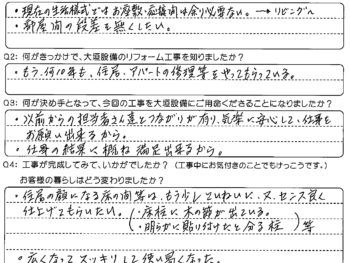 ・現在の生活様式ではお座敷・応接間は余り必要ない。→ リビングへ
・部屋間の段差を無くしたい。
Q2: 何がきっかけで、大垣設備のリフォーム工事を知りましたか?
・もう、何10年も、住居、アパートの修理等をやってもらっている。
Q3: 何が決め手となって、今回の工事を大垣設備にご用命くださることになりましたか?
・以前からの担当者さん達とつながりが有り、気楽に安心して、仕事を
お願い出来るから。
・仕事の結果に概ね満足出来るから。
Q4: 工事が完成してみて、いかがでしたか?(工事中にお気付きのことでもけっこうです。)
お客様の暮らしはどう変わりましたか?
・住居の顔になる床の間等は、もう少していねいに、又、センス良く
仕上げてもらいたい。(・床柱に木の節が出ている。
・明らかに貼り付けたと分る柱)等
・広くなってスッキリして使い易くなった。